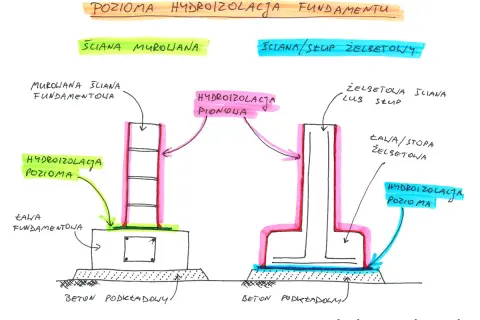 POZIOMA HYDROIZOLACJA FUNDAMENTU
ŚCIANA MUROWANA
ŚCIANA/SŁUP ŻELBETOWY
MUROWANA ŚCIANA
FUNDAMENTOWA
HYDROIZOLACJA
PIONOWA
ŻELBETOWA ŚCIANA
LUB SŁUP
HYDROIZOLACJA
POZIOMA
ŁAWA/STOPA
ŻELBETOWA
HYDROIZOLACJA
POZIOMA
ŁAWA
FUNDAMENTOWA
BETON PODKŁADOWY
BETON PODKŁADOWY